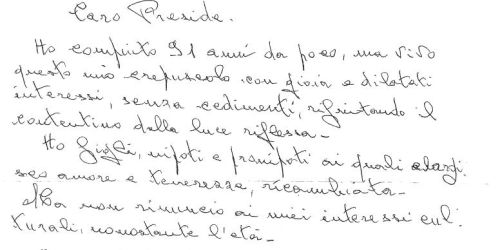 Caro Preside.
Ho compiuto 91 anni da poco, ma vivo
questo mio crepuscolo con gioia e dilatati
interessi, senza cedimenti, rifiutando il
contentino della luce riflessa-
Ho figli, nipoti e pronipoti ai quali elargi.
sco amore e tenerezza, ricambiata-
Ma non rinuncio ai miei interessi cul.
turali, nonostante l'età-